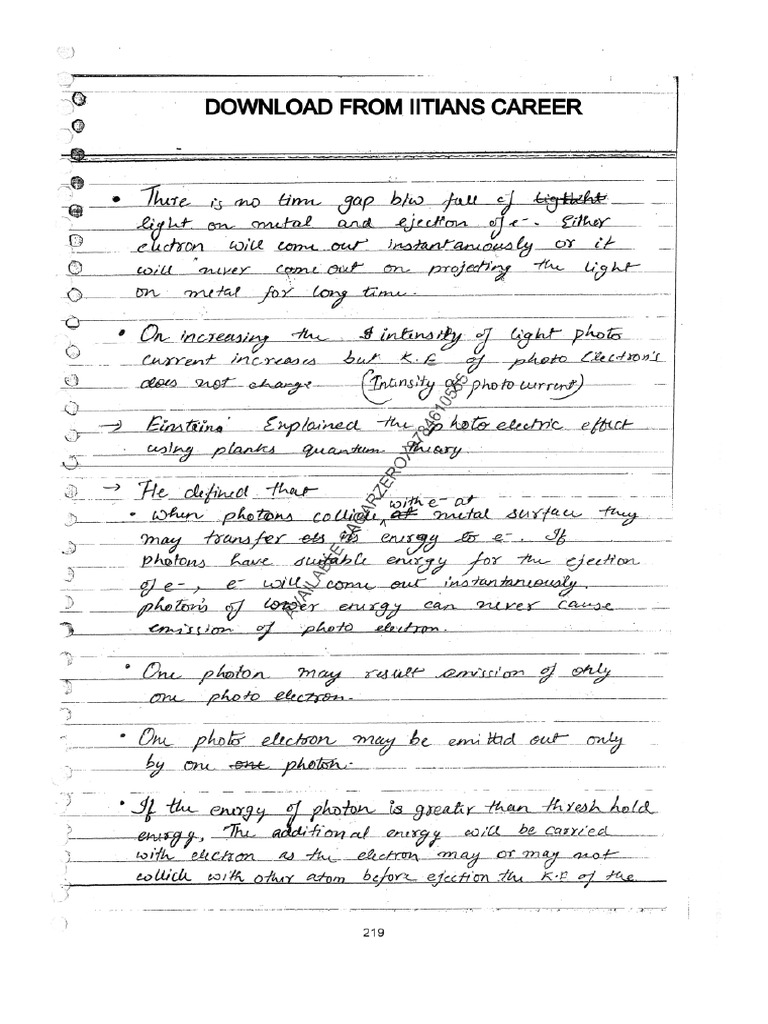 DOWNLOAD FROM IITIANS CAREER
• There is no time gap b/w fall of
light on metal and ejection of e-. Either
electron will come out instantaniously or it
will never come out on projecting the light
on metal for long time.
• On increasing the intensity of light photo
current increases but K.E of photo Electron's
does not change (Intensity ∝ photo current)
→ Einstains Explained the photo electric effect
using planks quantum theory.
→ He defined that
• When photons collide with e- at metal surface they
may transfer its energy to e-. If
photons have suitable energy for the ejection
of e-, e- will come out instantaneously.
photon's of lower energy can never cause
emission of photo electron.
• One photon may result emission of only
one photo electron.
• One photo electron may be emitted out only
by one photon.
• If the energy of photon is greater than thresh hold
energy, The additional energy will be carried
with electron as the electron may or may not
collide with other atom before ejection the K.E of the
AVAILABLE SAGARZEROX
219